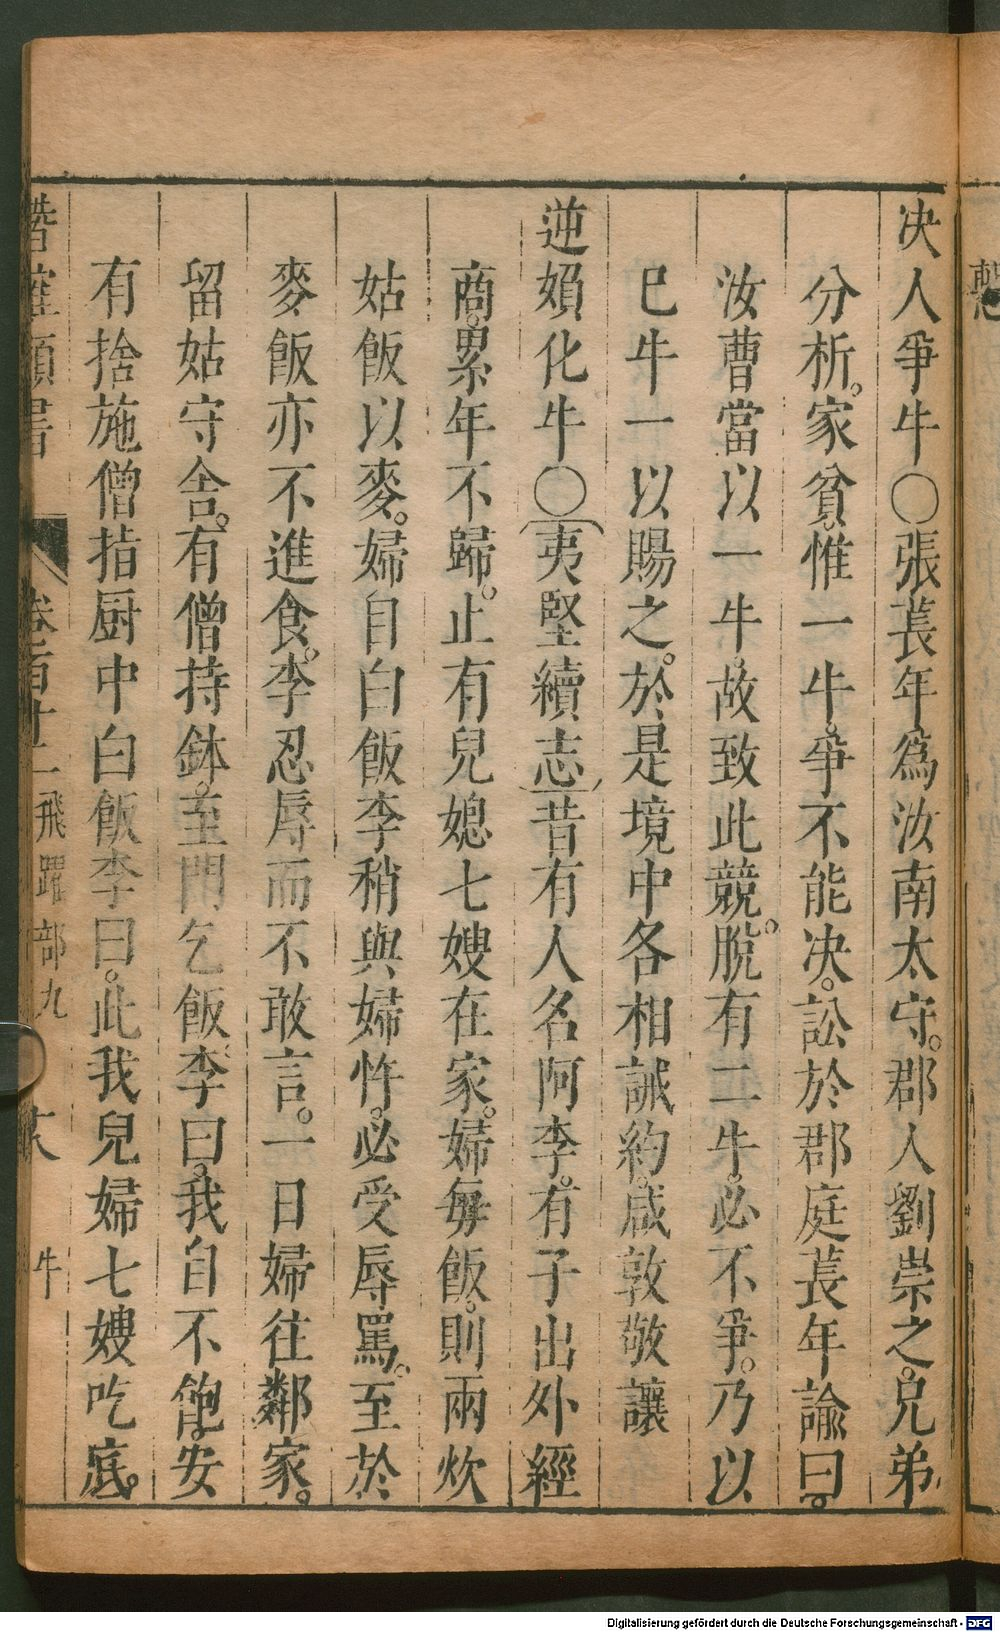 决人爭牛〇張萇年爲汝南太守。郡人劉崇之。兄弟
分析。家貧。惟一牛。爭不能决。訟於郡庭萇年諭曰。
汝曹當以一牛。故致此競。脫有二牛。必不爭。乃以
巳牛一以賜之。於是境中各相誡約。咸敦敬讓
逆媍化牛〇（夷堅續志）昔有人名阿李。有子出外經
商。累年不歸。止有兒媳七嫂在家。婦每飯。則兩炊
姑飯以麥。婦自白飯李稍與婦忤。必受辱罵。至於
麥飯亦不進食。李忍辱而不敢言。一日婦往鄰家。
留姑守舍。有僧持鉢。至門乞飯。李曰。我自不飽。安
有捨施僧指厨中白飯李曰。此我兒婦七嫂吃底。
飛躍部九
牛
Digitalisierung gefördert durch die Deutsche Forschungsgemeinschaft - DFG